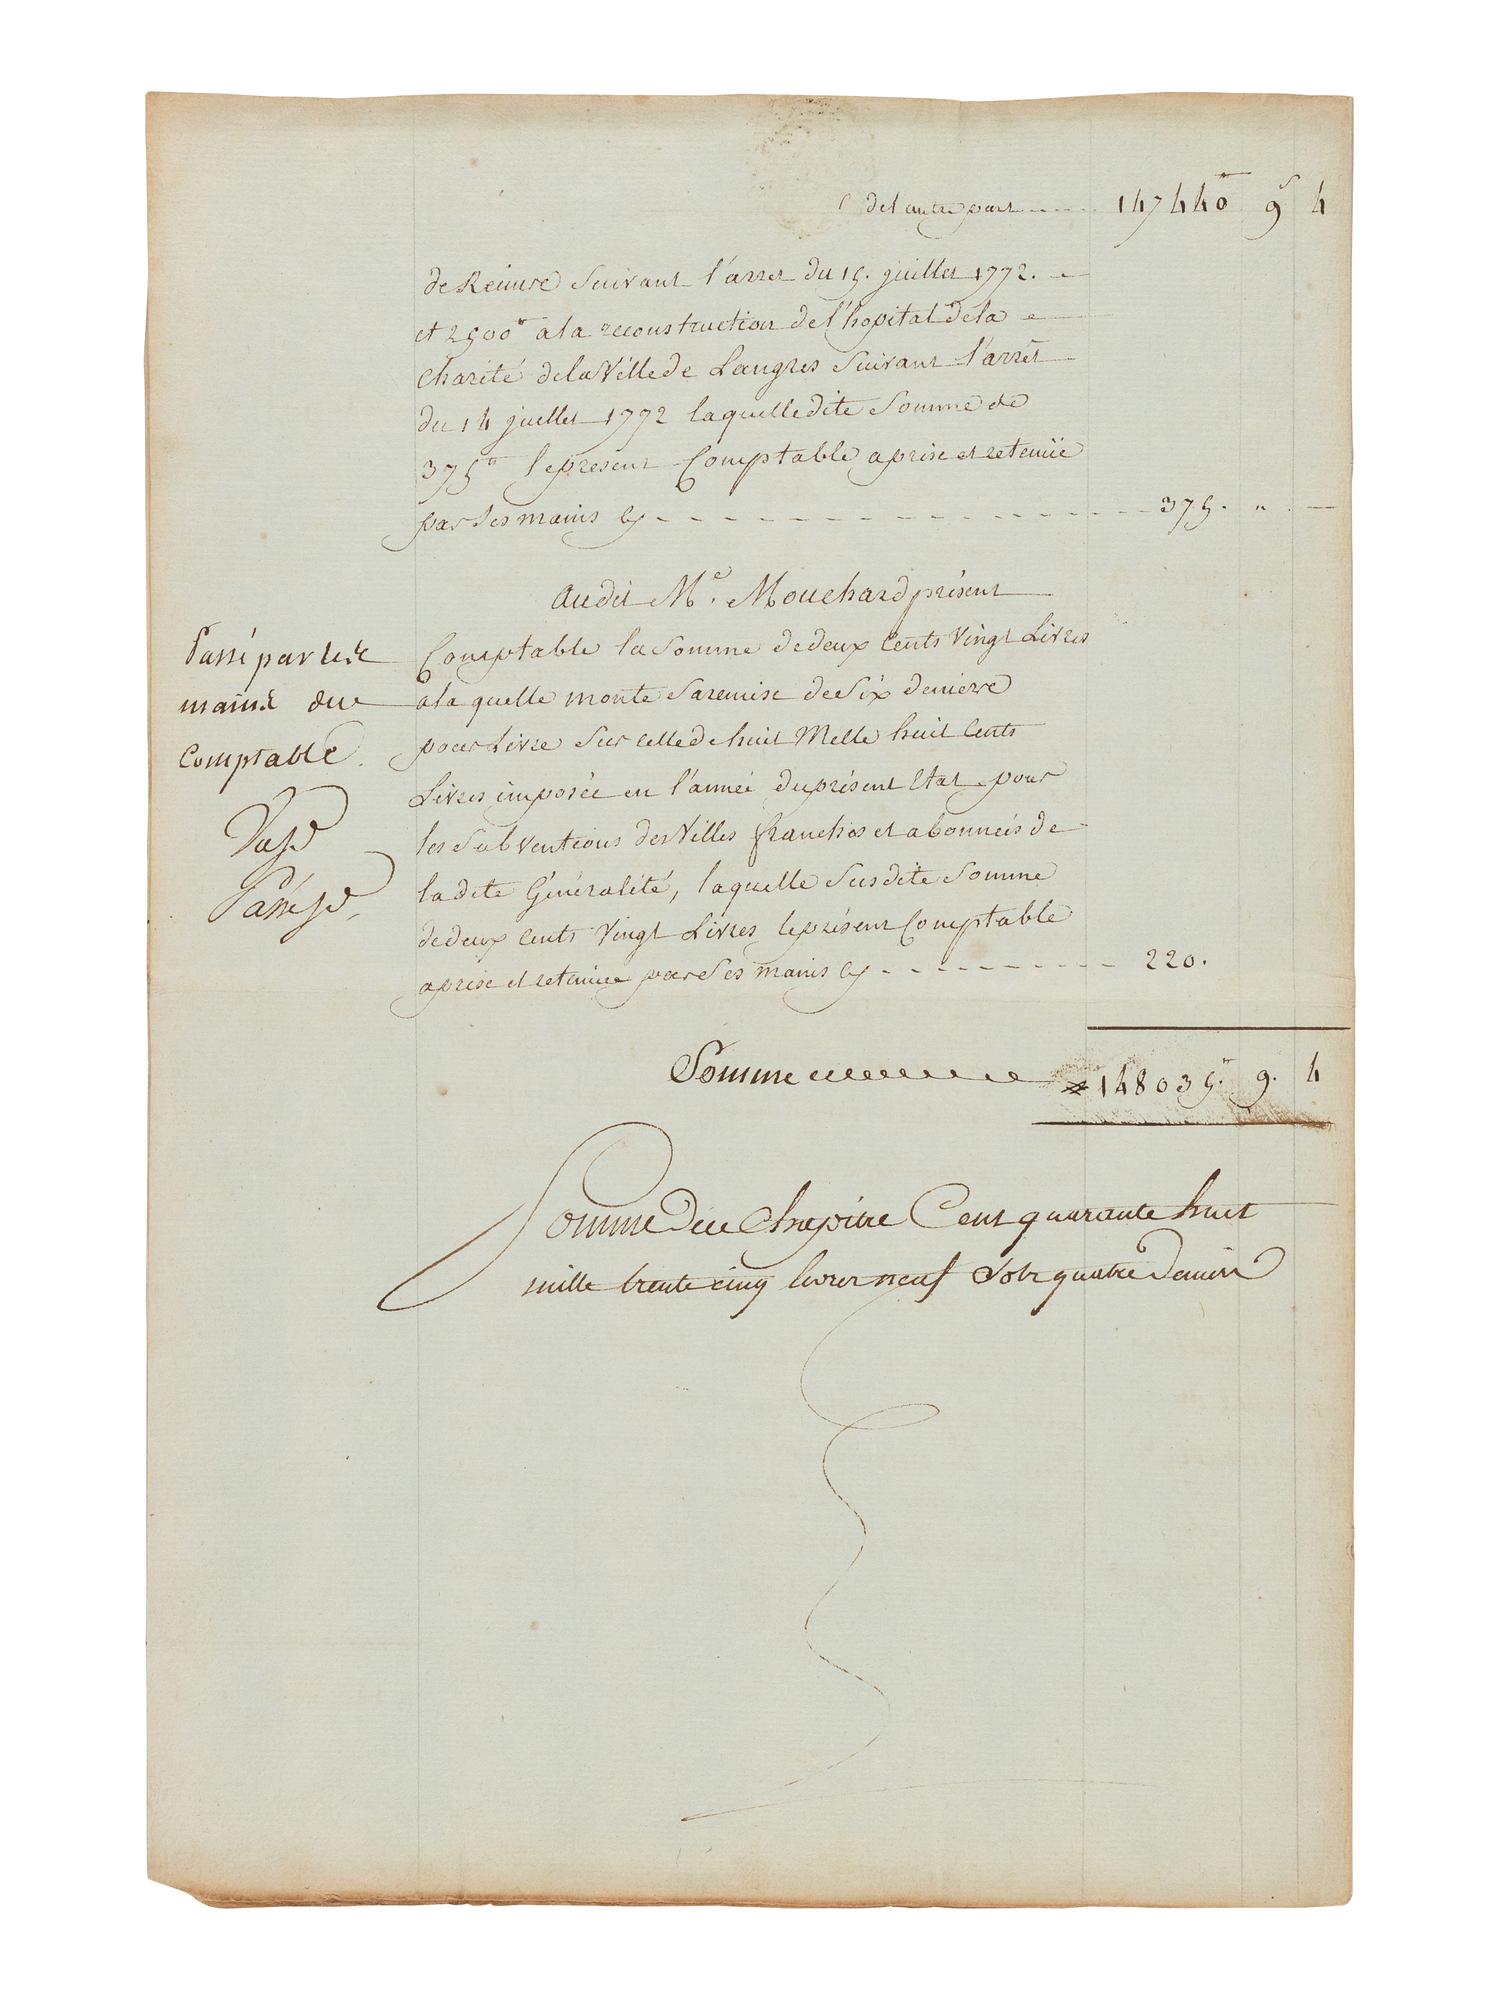 de l'autre part ---- 147440tt 9s 4
de Reims Suivant l'arret du 15. juillet 1772.
et 2500tt a la reconstruction de l'hopital de la
Charité de la Ville de Langres Suivant l'arrêt
du 14 juillet 1772 laquelle dite Somme de
375tt le present Comptable a prise et retenüe
par Ses mains Cy - - - - - - - - - - 375. " —
Audit Me. Mouchard présent
Passé par les
mains du
Comptable.
Comptable la Somme de deux Cents Vingt Livres
a la quelle monte Sa remise de Six deniers
pour Livre Sur celle de huit Mille huit Cents
Livres imposée en l'année du présent Etat pour
les Subventions des Villes franches et abonnées de
la dite Généralité, laquelle Susdite Somme
de deux Cents Vingt Livres le présent Comptable
a prise et retenüe par Ses mains Cy - - - - - - - - 220.
Somme 148035tt. 9. 4
Somme du Chapitre Cent quarante huit
mille trente cinq livres neuf Sols quatre deniers